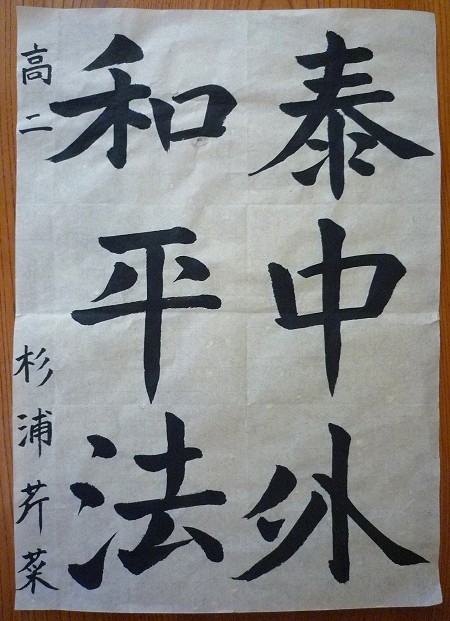 泰中外
和平法
高二 杉浦芹菜